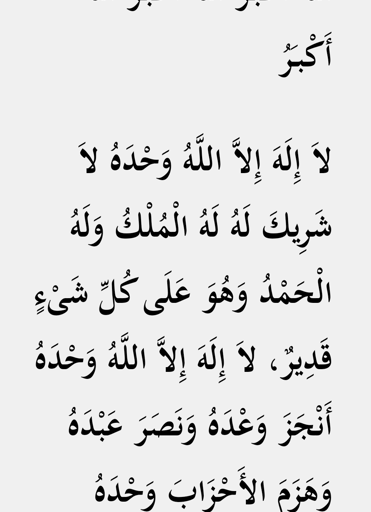 أَكْبَرُ
لاَ إِلَهَ إِلاَّ اللَّهُ وَحْدَهُ لاَ
شَرِيكَ لَهُ لَهُ الْمُلْكُ وَلَهُ
الْحَمْدُ وَهُوَ عَلَى كُلِّ شَىْءٍ
قَدِيرٌ، لاَ إِلَهَ إِلاَّ اللَّهُ وَحْدَهُ
أَنْجَزَ وَعْدَهُ وَنَصَرَ عَبْدَهُ
وَهَزَمَ الأَحْزَابَ وَحْدَهُ